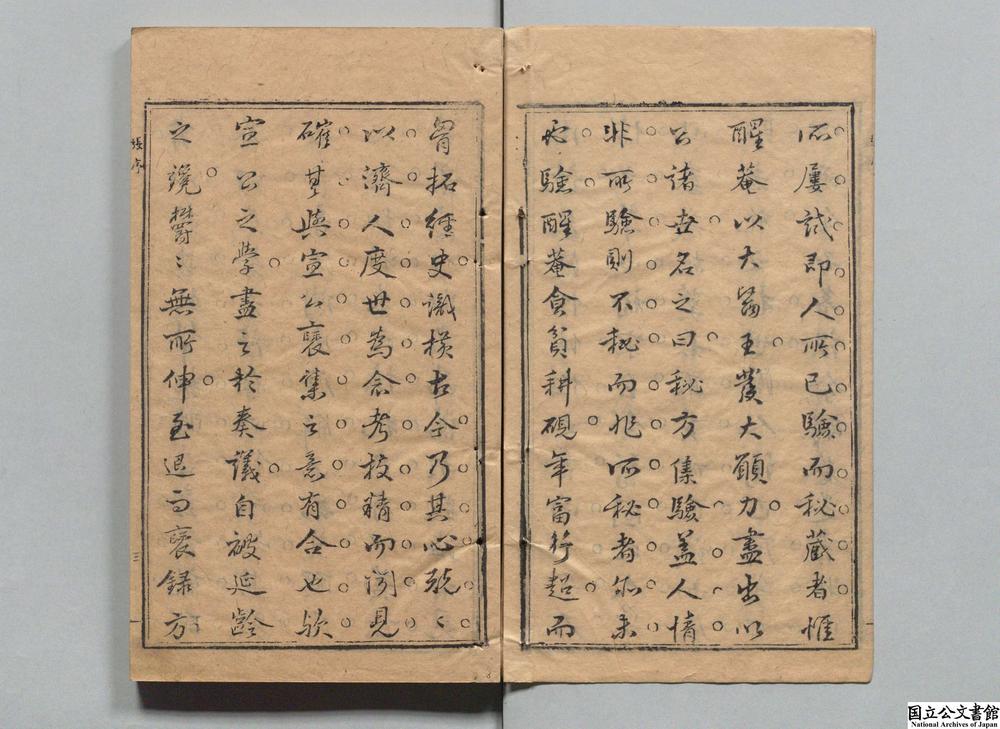 所屢試即人所已驗而秘藏者惟
醒菴以大醫王發大願力盡出以
公諸世名之曰秘方集驗蓋人情
非所驗則不秘而非所秘者亦未
必驗醒菴食貧耕硯年富行超而
胷拓經史識橫古今乃其心兢〻
以濟人度世為念考校精而闻見
確其與宣公裒集之意有合也欤
宣公之學盡之於奏議自被延齡
之讒欝〻無所伸至退而裒録方
張序
三
国立公文書館
National Archives of Japan